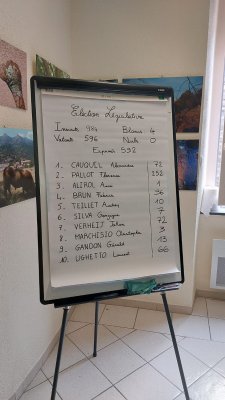 Election Législative
Inscrits 984 Blancs 4
Votants 596 Nuls 0
Exprimés 592
1. CAUQUEL Alexandre 72
2. PALLOT Florence 252
3. ALIROL Anne 1
4. BRUN Fabrice 96
5. TEILLET Audrey 10
6. SILVA Gonzague 7
7. VERHEIJ Johan 72
8. MARCHISIO Christophe 3
9. GANDON Gérald 13
10. UGHETTO Laurent 66